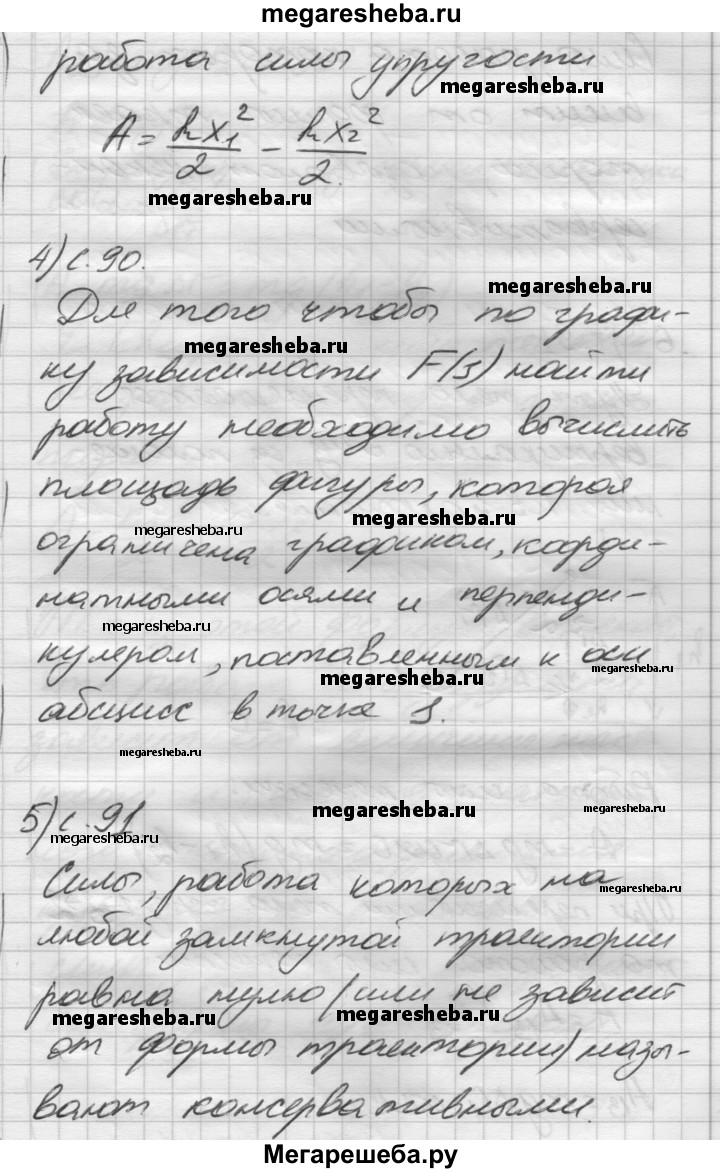 megaresheba.ru
работа силы упругости
megaresheba.ru
A = kx₁²/2 - kx₂²/2.
megaresheba.ru
4) с. 90.
megaresheba.ru
Для того чтобы по графи-
megaresheba.ru
ку зависимости F(s) найти
работу необходимо вычислить
площадь фигуры, которая
megaresheba.ru
megaresheba.ru
ограничена графиком, коорди-
натными осями и перпенди-
megaresheba.ru
куляром, поставленным к оси
megaresheba.ru
megaresheba.ru
абсцисс в точке s.
megaresheba.ru
5) с. 91
megaresheba.ru
megaresheba.ru
megaresheba.ru
Силы, работа которых на
megaresheba.ru
любой замкнутой траектории
равна нулю (или не зависит
megaresheba.ru
megaresheba.ru
от формы траектории) назы-
вают консервативными.
Мегарешеба.ру